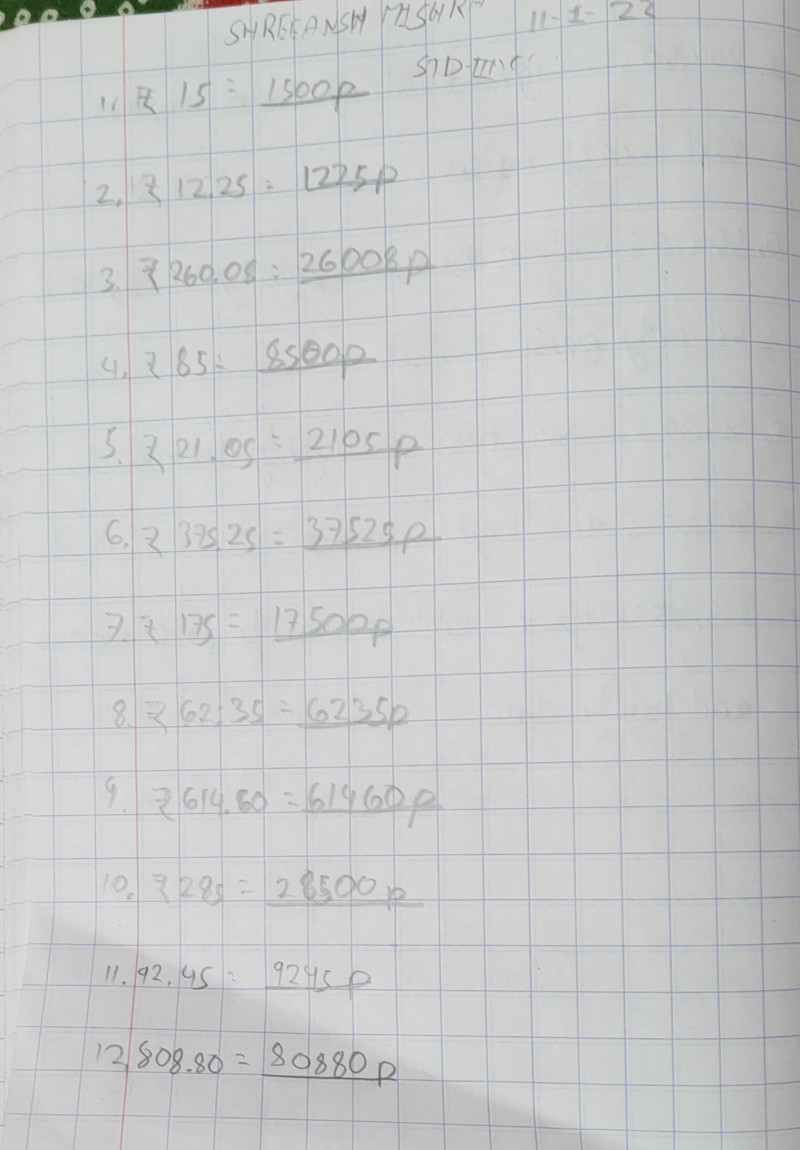 SHREEANSH MISHRA 11-1-22
STD-III C
1. ₹ 15 = 1500p
2. ₹ 12.25 = 1225p
3. ₹ 260.08 = 26008p
4. ₹ 85 = 8500p
5. ₹ 21.05 = 2105p
6. ₹ 375.25 = 37525p
7. ₹ 175 = 17500p
8. ₹ 62.35 = 6235p
9. ₹ 614.60 = 61460p
10. ₹ 285 = 28500p
11. 92.45 = 9245p
12 808.80 = 80880p